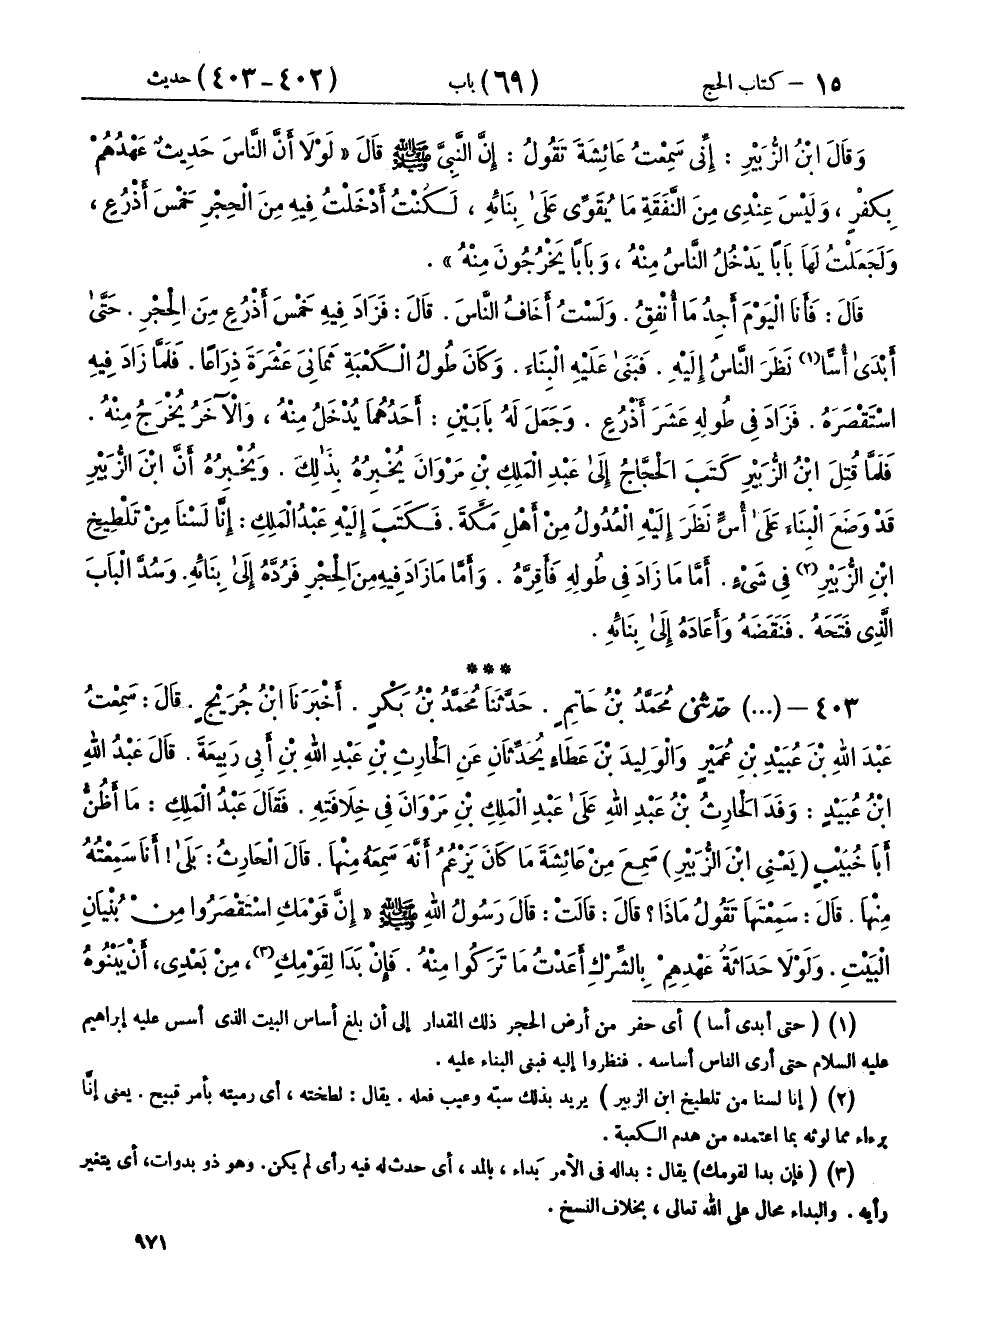 ١٥ – كتاب الحج (٦٩) باب (٤٠٢-٤٠٣) حديث
وَقَالَ ابْنُ الزُّبَيْرِ : إِنِّي سَمِعْتُ عَائِشَةَ تَقُولُ : إِنَّ النَّبِيَّ ﷺ قَالَ « لَوْلَا أَنَّ النَّاسَ حَدِيثٌ عَهْدُهُمْ
بِكُفْرٍ ، وَلَيْسَ عِنْدِي مِنَ النَّفَقَةِ مَا يُقَوِّي عَلَىٰ بِنَائِهِ ، لَكُنْتُ أَدْخَلْتُ فِيهِ مِنَ الْحِجْرِ خَمْسَ أَذْرُعٍ ،
وَلَجَعَلْتُ لَهَا بَابًا يَدْخُلُ النَّاسُ مِنْهُ ، وَبَابًا يَخْرُجُونَ مِنْهُ » .
قَالَ : فَأَنَا الْيَوْمَ أَجِدُ مَا أُنْفِقُ . وَلَسْتُ أَخَافُ النَّاسَ . قَالَ : فَزَادَ فِيهِ خَمْسَ أَذْرُعٍ مِنَ الْحِجْرِ . حَتَّىٰ
أَبْدَىٰ أُسًّا(١) نَظَرَ النَّاسُ إِلَيْهِ . فَبَنَىٰ عَلَيْهِ الْبِنَاءَ . وَكَانَ طُولُ الْكَعْبَةِ ثَمَانِيَ عَشْرَةَ ذِرَاعًا . فَلَمَّا زَادَ فِيهِ
اسْتَقْصَرَهُ . فَزَادَ فِي طُولِهِ عَشَرَ أَذْرُعٍ . وَجَعَلَ لَهُ بَابَيْنِ : أَحَدُهُمَا يُدْخَلُ مِنْهُ ، وَالْآخَرُ يُخْرَجُ مِنْهُ .
فَلَمَّا قُتِلَ ابْنُ الزُّبَيْرِ كَتَبَ الْحَجَّاجُ إِلَىٰ عَبْدِ الْمَلِكِ بْنِ مَرْوَانَ يُخْبِرُهُ بِذَٰلِكَ . وَيُخْبِرُهُ أَنَّ ابْنَ الزُّبَيْرِ
قَدْ وَضَعَ الْبِنَاءَ عَلَىٰ أُسٍّ نَظَرَ إِلَيْهِ الْعُدُولُ مِنْ أَهْلِ مَكَّةَ . فَكَتَبَ إِلَيْهِ عَبْدُ الْمَلِكِ : إِنَّا لَسْنَا مِنْ تَلْطِيخِ
ابْنِ الزُّبَيْرِ(٢) فِي شَيْءٍ . أَمَّا مَا زَادَ فِي طُولِهِ فَأَقِرَّهُ . وَأَمَّا مَا زَادَ فِيهِ مِنَ الْحِجْرِ فَرُدَّهُ إِلَىٰ بِنَائِهِ. وَسُدَّ الْبَابَ
الَّذِي فَتَحَهُ . فَنَقَضَهُ وَأَعَادَهُ إِلَىٰ بِنَائِهِ .
* * *
٤٠٣ – (...) حَدَّثَنِي مُحَمَّدُ بْنُ حَاتِمٍ . حَدَّثَنَا مُحَمَّدُ بْنُ بَكْرٍ . أَخْبَرَنَا ابْنُ جُرَيْجٍ . قَالَ : سَمِعْتُ
عَبْدَ اللهِ بْنَ عُبَيْدِ بْنِ عُمَيْرٍ وَالْوَلِيدَ بْنَ عَطَاءٍ يُحَدِّثَانِ عَنِ الْحَارِثِ بْنِ عَبْدِ اللهِ بْنِ أَبِي رَبِيعَةَ . قَالَ عَبْدُ اللهِ
ابْنُ عُبَيْدٍ : وَفَدَ الْحَارِثُ بْنُ عَبْدِ اللهِ عَلَىٰ عَبْدِ الْمَلِكِ بْنِ مَرْوَانَ فِي خِلَافَتِهِ . فَقَالَ عَبْدُ الْمَلِكِ : مَا أَظُنُّ
أَبَا خُبَيْبٍ ( يَعْنِي ابْنَ الزُّبَيْرِ ) سَمِعَ مِنْ عَائِشَةَ مَا كَانَ يَزْعُمُ أَنَّهُ سَمِعَهُ مِنْهَا . قَالَ الْحَارِثُ : بَلَىٰ ! أَنَا سَمِعْتُهُ
مِنْهَا . قَالَ : سَمِعْتَهَا تَقُولُ مَاذَا ؟ قَالَ : قَالَتْ : قَالَ رَسُولُ اللهِ ﷺ « إِنَّ قَوْمَكِ اسْتَقْصَرُوا مِنْ بُنْيَانِ
الْبَيْتِ . وَلَوْلَا حَدَاثَةُ عَهْدِهِمْ بِالشِّرْكِ أَعَدْتُ مَا تَرَكُوا مِنْهُ . فَإِنْ بَدَا لِقَوْمِكِ(٣)، مِنْ بَعْدِي، أَنْ يَبْنُوهُ
(١) ( حتى أبدى أسا ) أي حفر من أرض الحجر ذلك المقدار إلى أن بلغ أساس البيت الذي أسس عليه إبراهيم
عليه السلام حتى أرى الناس أساسه . فنظروا إليه فبنى البناء عليه .
(٢) ( إنا لسنا من تلطيخ ابن الزبير ) يريد بذلك سبّه وعيب فعله . يقال : لطخته ، أي رميته بأمر قبيح . يعني إنّا
برءاء مما لوثه بما اعتمده من هدم الكعبة .
(٣) ( فإن بدا لقومك) يقال : بدا له في الأمر بَداء ، بالمد ، أي حدث له فيه رأي لم يكن. وهو ذو بدوات، أي يتغير
رأيه . والبداء محال على الله تعالى ، بخلاف النسخ .
٩٧١